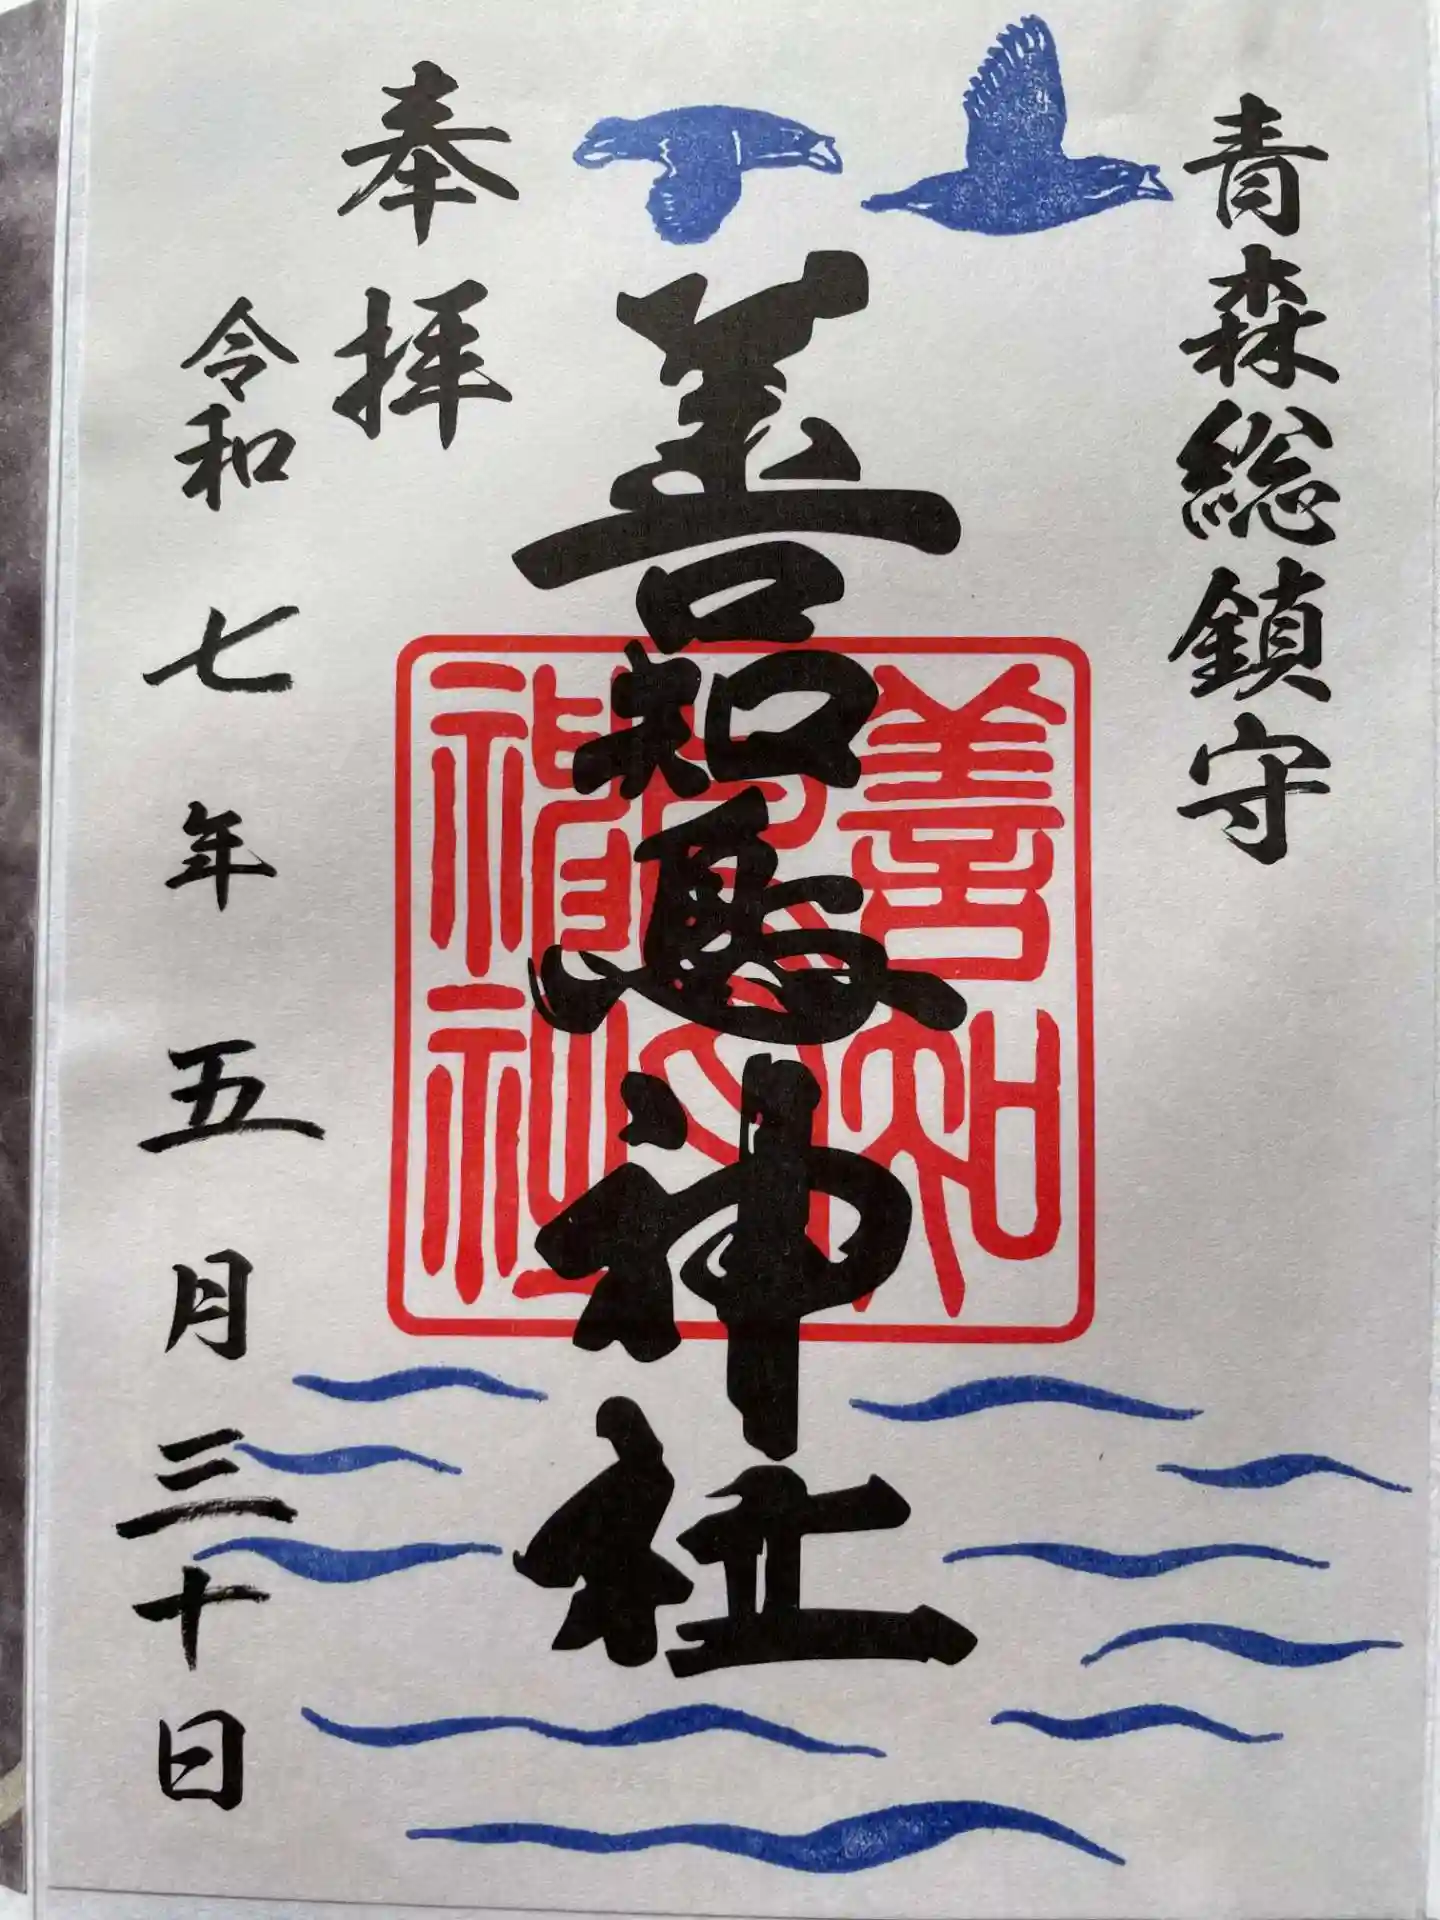 青森総鎮守
善知鳥神社
善知鳥神社
奉拝
令和七年五月三十日